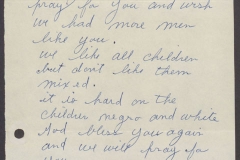 pray fo you and wish
we had more men
like you.
we like all children
but don't like them
mixed.
it is hard on the
childer negro and white
And bless you again
and we will pray fo
you